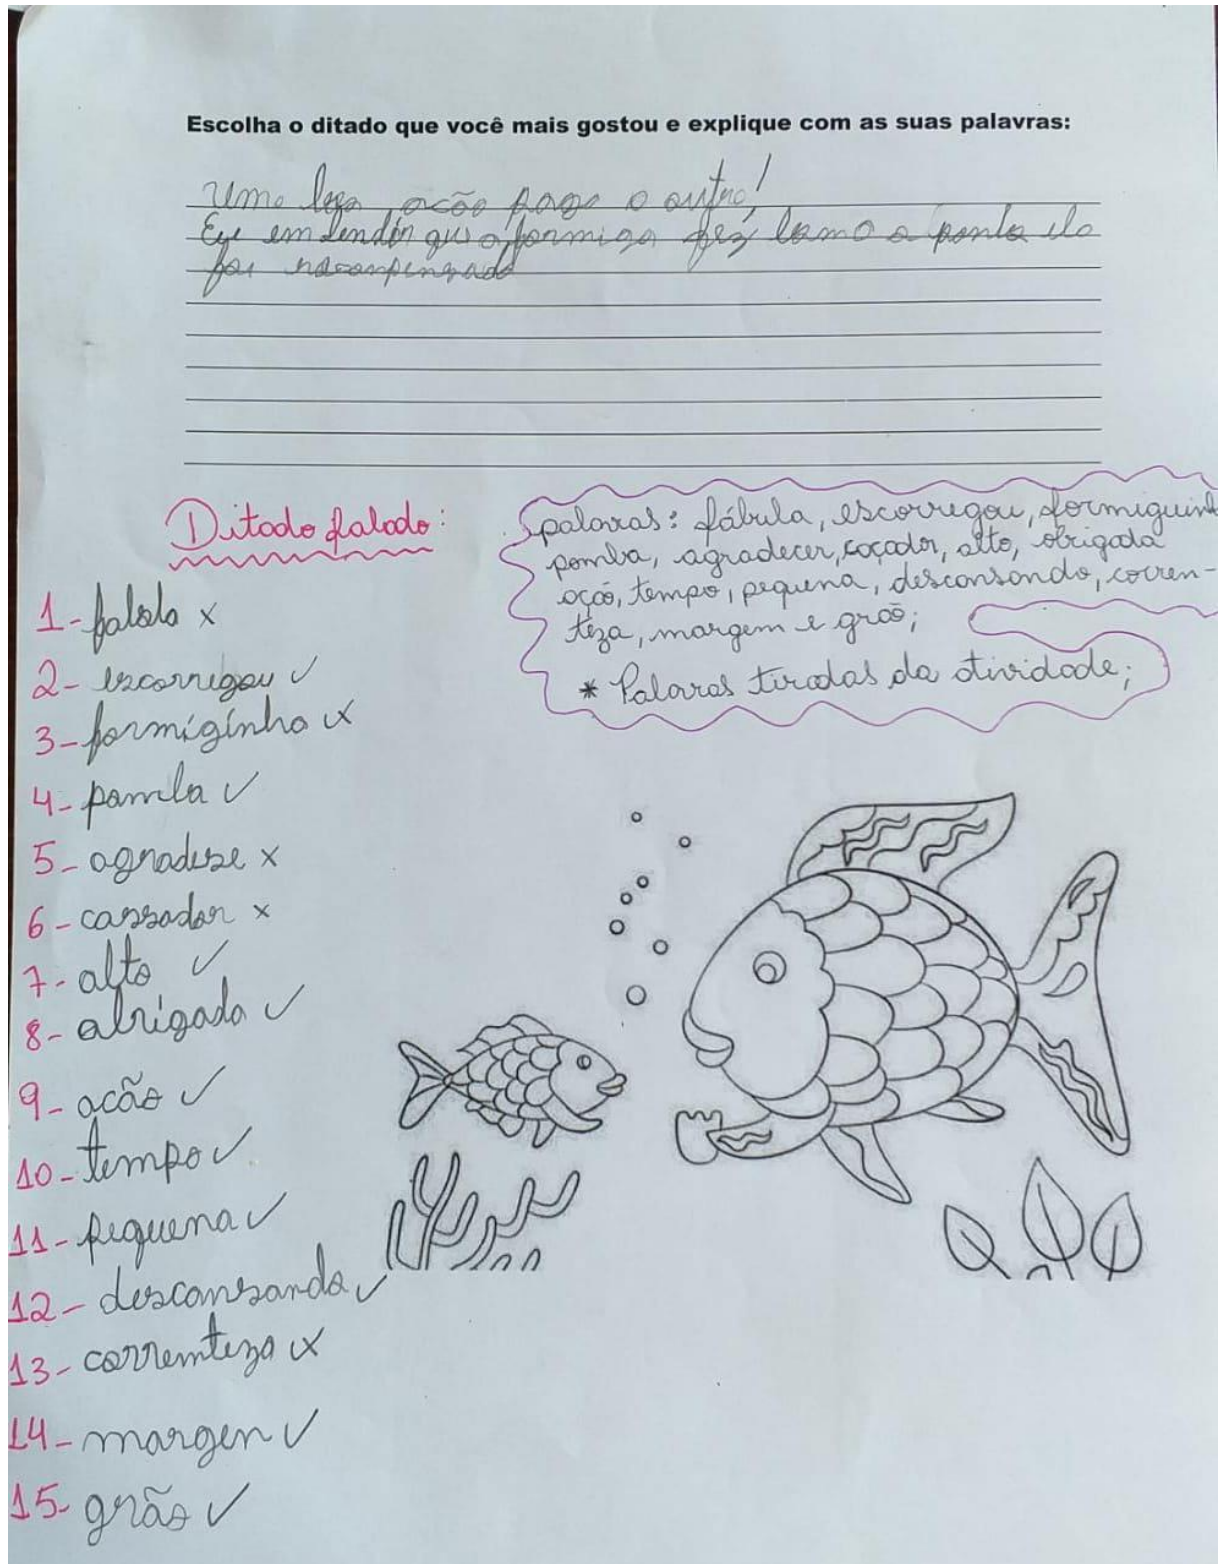 Escolha o ditado que você mais gostou e explique com as suas palavras:
Uma boa ação paga o outra!
que a formiga fez como a pomba ela
foi
Ditado falado:
palavras: fábula, escorregou, formiguinh
pomba, agradecer, caçador, alto, obrigada
ação, tempo, pequena, descansando, corren-
teza, margem e grão;
* Palavras tiradas da atividade;
1- falola x
2- escorregou ✓
3- formiginha x
4- pomba ✓
5- agradese x
6- cassador x
7- alto ✓
8- obrigada ✓
9- acão ✓
10- tempo ✓
11- pequena ✓
12- descansando ✓
13- corremteza x
14- margen ✓
15- grão ✓